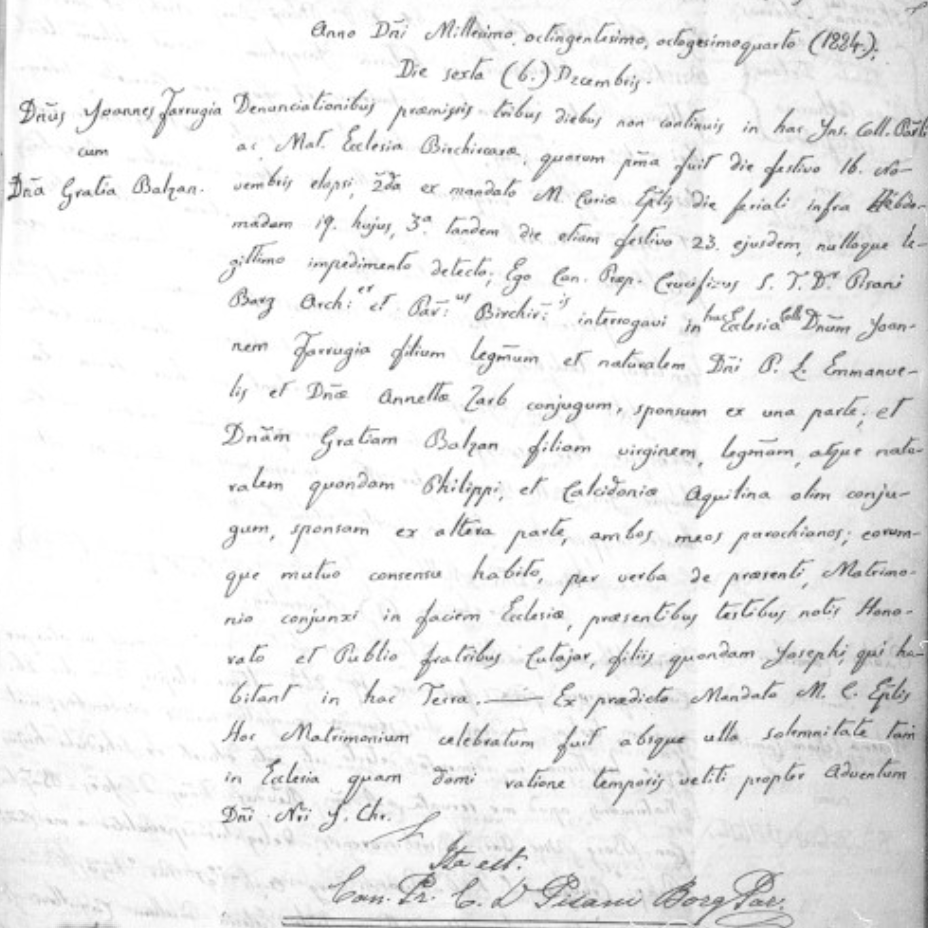 Anno Dñi Millesimo, octingentesimo, octogesimoquarto (1884.).
Die sexta (6.) Decembris.
Dñus Joannes Farrugia
cum
Dña Gratia Balzan.
Denunciationibus præmissis tribus diebus non continuis in hac Ins. Coll. Parli
ac Mat. Ecclesia Birchircaræ, quarum pma fuit die festivo 16. No-
vembris elapsi, 2da ex mandato M. Curiæ Eplis die feriali infra Hebdo-
madam 19. hujus, 3a tandem die etiam festivo 23. ejusdem, nulloque le-
gittimo impedimento detecto, Ego Can. Prep. Crucifixus S. T. Dr. Pisani
Borg Arch: er et Par: us Birchir: is interrogavi in hac Ecclesia Coll. Dñum Joan-
nem Farrugia filium legmum et naturalem Dñi P. L. Emmanue-
lis et Dñæ Annettæ Zarb conjugum, sponsum ex una parte; et
Dñam Gratiam Balzan filiam virginem, legmam, atque natu-
ralem quondam Philippi, et Calcidoniæ Aquilina olim conju-
gum, sponsam ex altera parte, ambos meos parochianos; eorum-
que mutuo consensu habito, per verba de præsenti, Matrimo-
nio conjunxi in faciem Ecclesiæ, præsentibus testibus notis Hono-
rato et Publio fratribus Cutajar, filiis quondam Josephi, qui ha-
bitant in hac Terra. —— Ex prædicto Mandato M. C. Eplis
Hoc Matrimonium celebratum fuit absque ulla solemnitate tam
in Ecclesia quam domi ratione temporis vetiti propter Adventum
Dñi Nri J. Chr.
Ita est.
Can. Pr. C. D Pisani Borg Par.